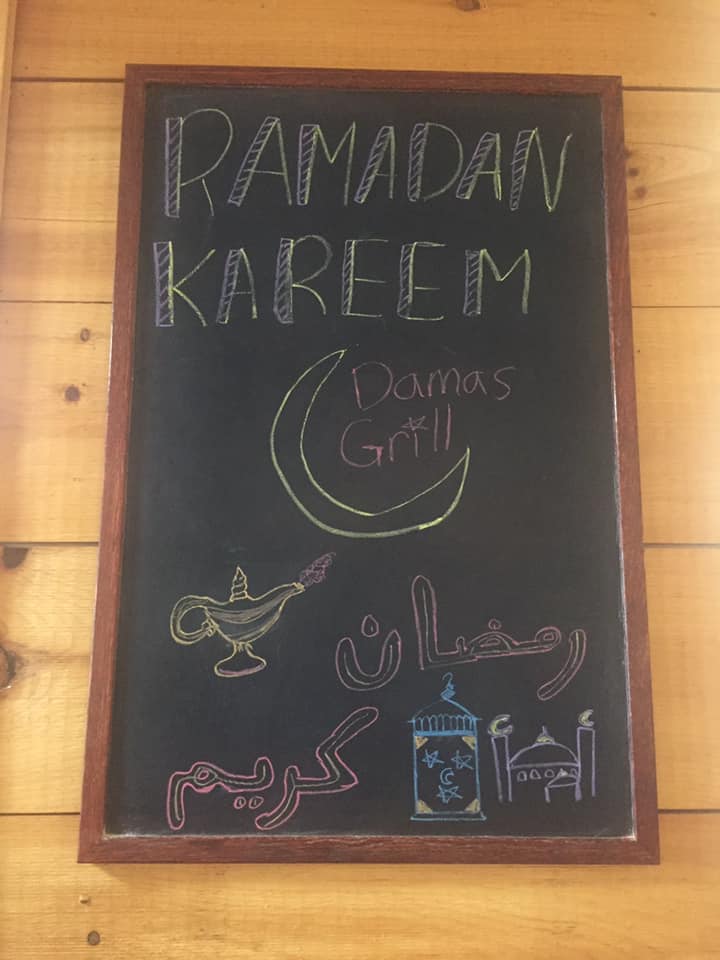 RAMADAN
KAREEM
Damas
Grill
رمضان
كريم